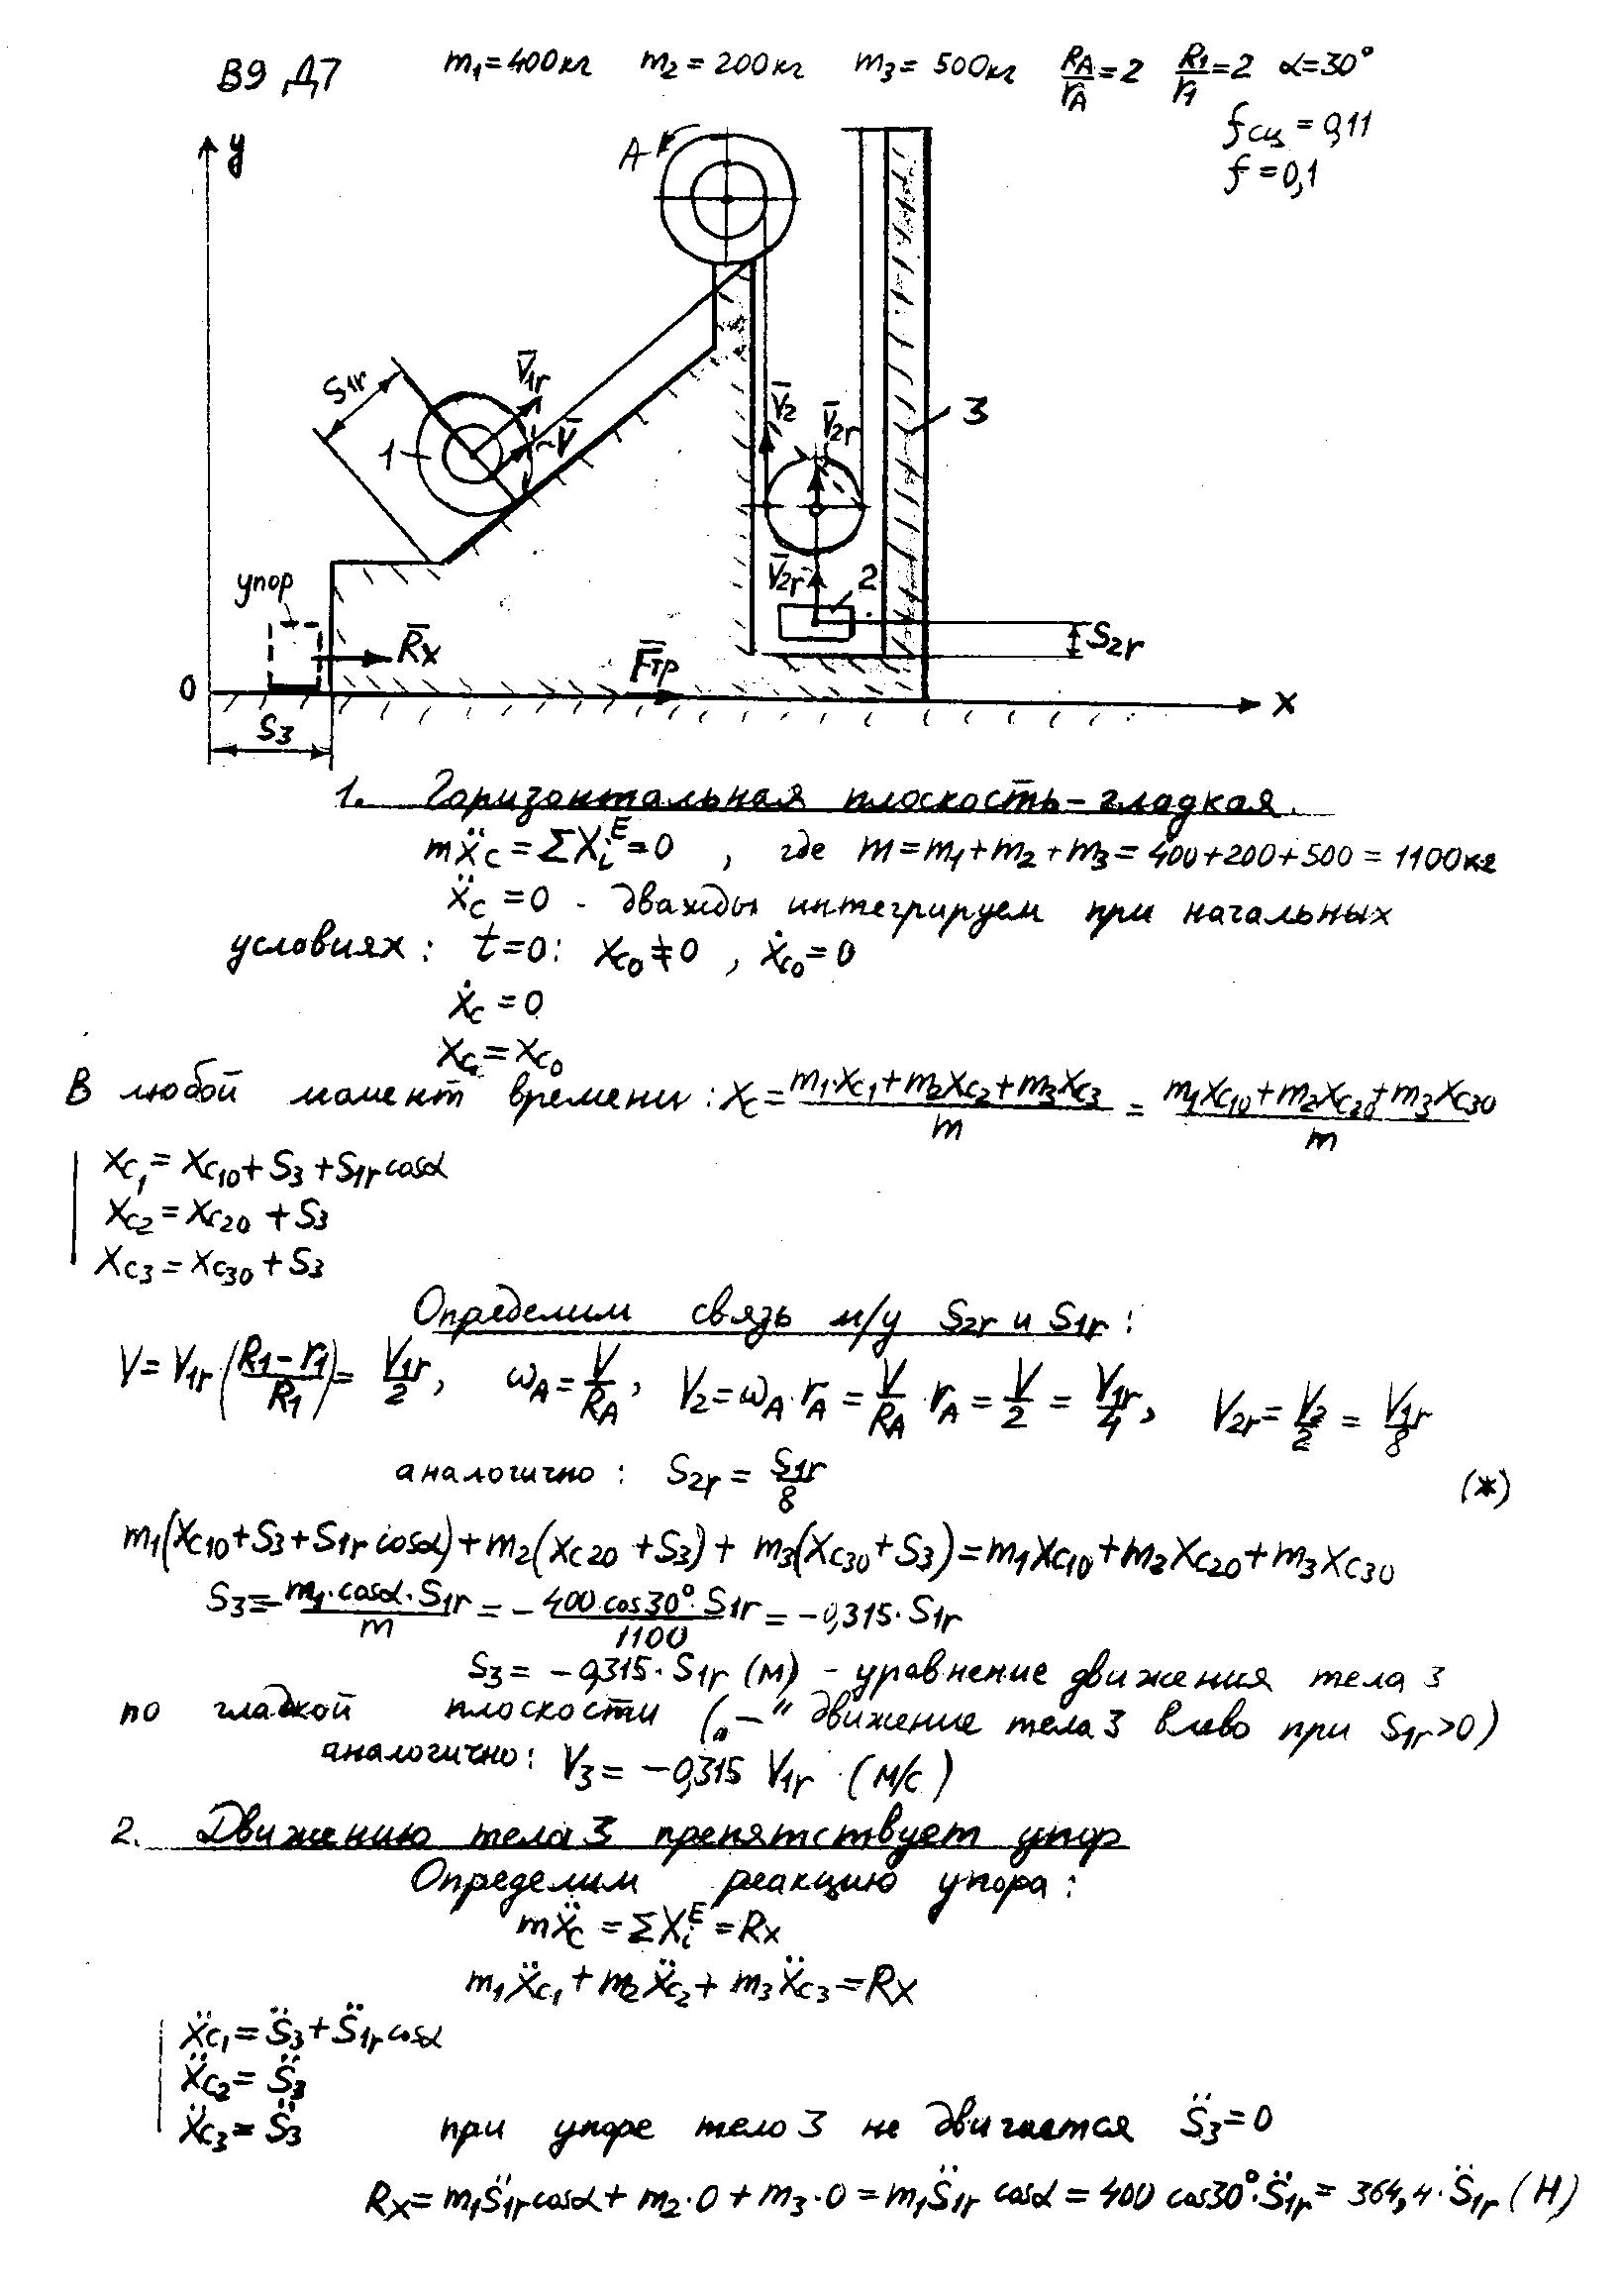 В9 Д7 m₁=400кг m₂=200кг m₃=500кг R_A/r_A=2 R₁/r₁=2 α=30°
f_сц=0,11
f=0,1
y
A
S₁r
V̄₁r
V̄
1
V̄₂
V̄₂r
3
упор
V̄₂r
2
R̄x
F̄тр
S₂r
0
x
S₃
1. Горизонтальная плоскость-гладкая.
mẍ_C=ΣX_i^E=0, где m=m₁+m₂+m₃=400+200+500=1100кг
ẍ_C=0 - дважды интегрируем при начальных
условиях: t=0: x_C0≠0, ẋ_C0=0
ẋ_C=0
x_C=x_C0
В любой момент времени: x_C=(m₁·x_C1+m₂x_C2+m₃x_C3)/m=(m₁x_C10+m₂x_C20+m₃x_C30)/m
x_C1=x_C10+S₃+S₁r cosα
x_C2=x_C20+S₃
x_C3=x_C30+S₃
Определим связь м/у S₂r и S₁r:
V=V₁r((R₁-r₁)/R₁)=V₁r/2, ω_A=V/R_A, V₂=ω_A·r_A=V/R_A·r_A=V/2=V₁r/4, V₂r=V₂/2=V₁r/8
аналогично: S₂r=S₁r/8 (*)
m₁(x_C10+S₃+S₁r cosα)+m₂(x_C20+S₃)+m₃(x_C30+S₃)=m₁x_C10+m₂x_C20+m₃x_C30
S₃=-(m₁·cosα·S₁r)/m=-(400 cos30°·S₁r)/1100=-0,315·S₁r
S₃=-0,315·S₁r (м) - уравнение движения тела 3
по гладкой плоскости („-" движение тела 3 влево при S₁r>0)
аналогично: V₃=-0,315 V₁r (м/с)
2. Движению тела 3 препятствует упор
Определим реакцию упора:
mẍ_C=ΣX_i^E=Rx
m₁ẍ_C1+m₂ẍ_C2+m₃ẍ_C3=Rx
ẍ_C1=S̈₃+S̈₁r cosα
ẍ_C2=S̈₃
ẍ_C3=S̈₃ при упоре тело 3 не двигается S̈₃=0
Rx=m₁S̈₁r cosα+m₂·0+m₃·0=m₁S̈₁r cosα=400 cos30°·S̈₁r=364,4·S̈₁r (Н)